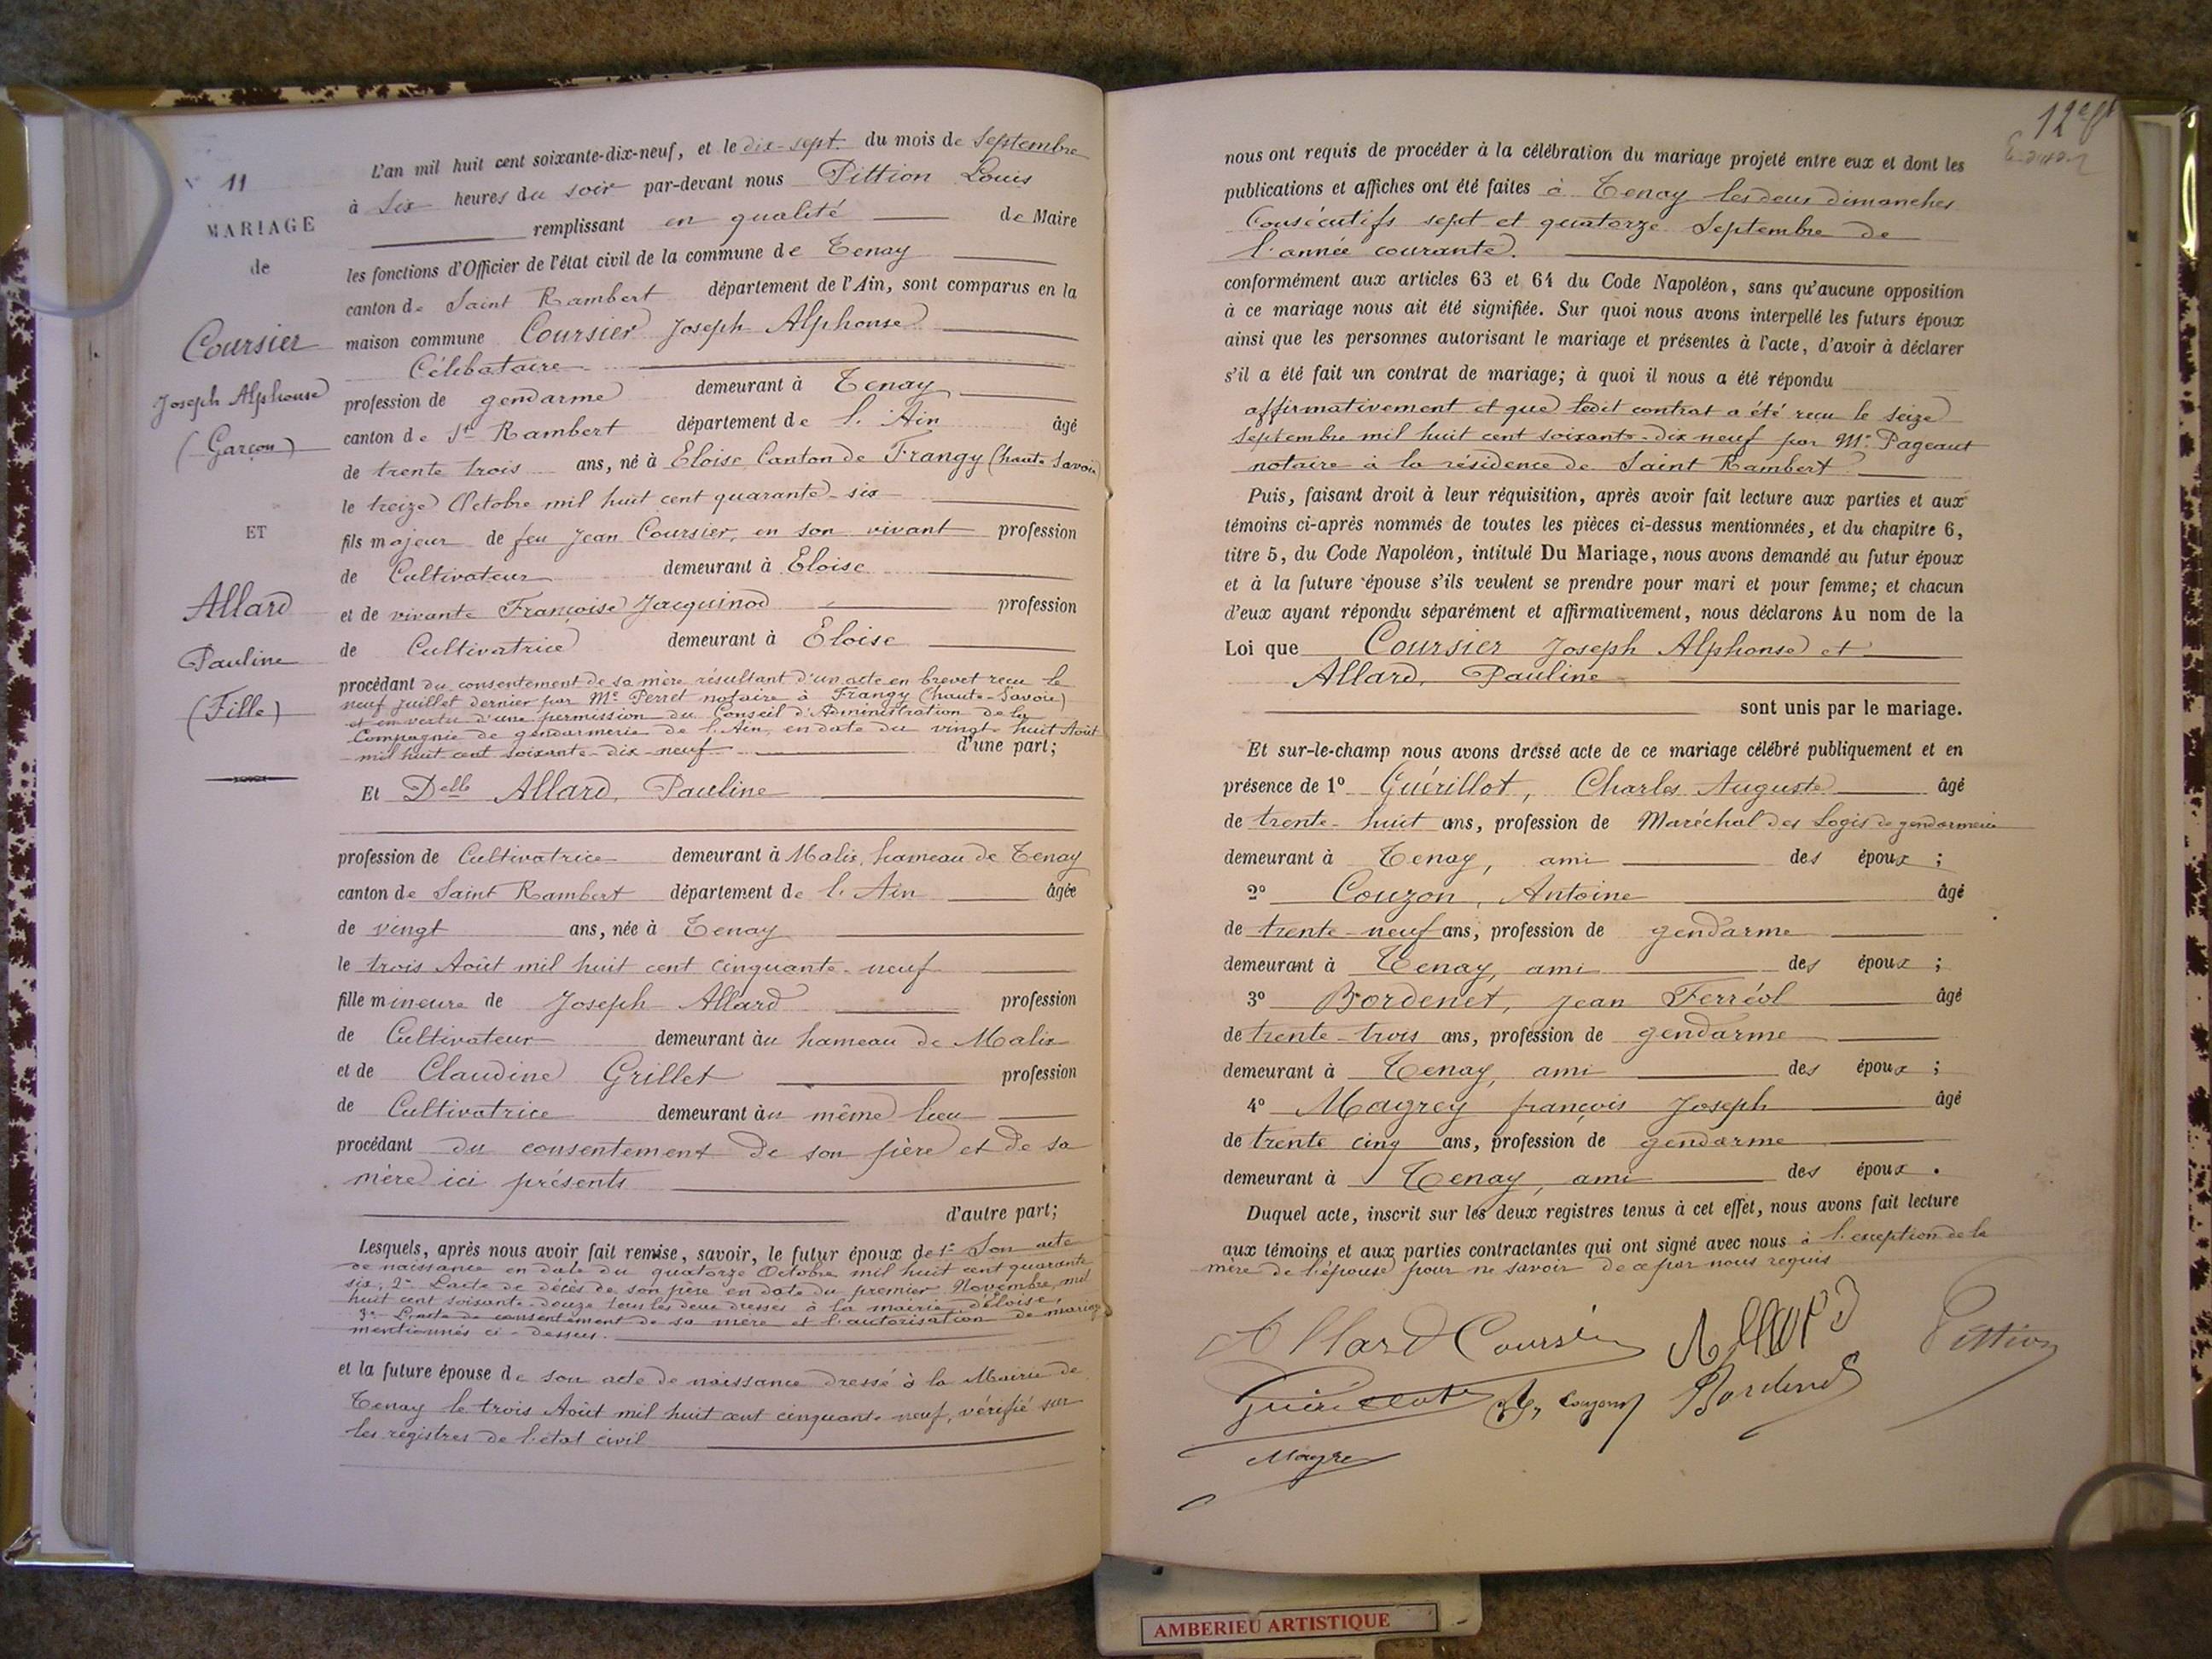 N° 11
MARIAGE
de
Coursier
Joseph Alphonse
(Garçon)
ET
Allard
Pauline
(Fille)
L'an mil huit cent soixante-dix-neuf, et le dix-sept du mois de Septembre
à Six heures du soir par-devant nous Pittion Louis
remplissant en qualité de Maire
les fonctions d'Officier de l'état civil de la commune de Tenay
canton de Saint Rambert département de l'Ain, sont comparus en la
maison commune Coursier Joseph Alphonse
Célibataire
profession de gendarme demeurant à Tenay
canton de St Rambert département de l'Ain âgé
de trente trois ans, né à Eloise Canton de Frangy (haute Savoie)
le treize Octobre mil huit cent quarante-six
fils majeur de feu Jean Coursier, en son vivant profession
de Cultivateur demeurant à Eloise
et de vivante Françoise Jacquinod profession
de Cultivatrice demeurant à Eloise
procédant du consentement de sa mère résultant d'un acte en brevet reçu le
neuf Juillet dernier par Me Perret notaire à Frangy (haute-Savoie)
et en vertu d'une permission du Conseil d'Administration de la
Compagnie de gendarmerie de l'Ain, en date du vingt-huit Août
mil huit cent soixante-dix-neuf d'une part;
Et Delle Allard, Pauline
profession de Cultivatrice demeurant à Malix, hameau de Tenay
canton de Saint Rambert département de l'Ain âgée
de vingt ans, née à Tenay
le trois Août mil huit cent cinquante-neuf
fille mineure de Joseph Allard profession
de Cultivateur demeurant au hameau de Malix
et de Claudine Grillet profession
de Cultivatrice demeurant au même lieu
procédant du consentement de son père et de sa
mère ici présents
d'autre part;
Lesquels, après nous avoir fait remise, savoir, le futur époux de 1° Son acte
de naissance en date du quatorze Octobre mil huit cent quarante
six, 2° L'acte de décès de son père en date du premier Novembre, mil
huit cent soixante-douze tous les deux dressés à la mairie d'Eloise,
3° L'acte de consentement de sa mère et l'autorisation de mariage
mentionnés ci-dessus.
et la future épouse de son acte de naissance dressé à la Mairie de
Tenay le trois Août mil huit cent cinquante neuf, vérifié sur
les registres de l'état civil
12e
nous ont requis de procéder à la célébration du mariage projeté entre eux et dont les
publications et affiches ont été faites à Tenay les deux dimanches
Consécutifs sept et quatorze Septembre de
l'année courante.
conformément aux articles 63 et 64 du Code Napoléon, sans qu'aucune opposition
à ce mariage nous ait été signifiée. Sur quoi nous avons interpellé les futurs époux
ainsi que les personnes autorisant le mariage et présentes à l'acte, d'avoir à déclarer
s'il a été fait un contrat de mariage; à quoi il nous a été répondu
affirmativement et que ledit contrat a été reçu le seize
Septembre mil huit cent soixante-dix neuf par Me Pageaut
notaire à la résidence de Saint Rambert
Puis, faisant droit à leur réquisition, après avoir fait lecture aux parties et aux
témoins ci-après nommés de toutes les pièces ci-dessus mentionnées, et du chapitre 6,
titre 5, du Code Napoléon, intitulé Du Mariage, nous avons demandé au futur époux
et à la future épouse s'ils veulent se prendre pour mari et pour femme; et chacun
d'eux ayant répondu séparément et affirmativement, nous déclarons Au nom de la
Loi que Coursier Joseph Alphonse et
Allard, Pauline
sont unis par le mariage.
Et sur-le-champ nous avons dressé acte de ce mariage célébré publiquement et en
présence de 1° Guérillot, Charles Auguste âgé
de trente-huit ans, profession de Maréchal des Logis de gendarmerie
demeurant à Tenay, ami des époux ;
2° Couzon, Antoine âgé
de trente-neuf ans, profession de gendarme
demeurant à Tenay, ami des époux ;
3° Bordenet, Jean Ferréol âgé
de trente-trois ans, profession de gendarme
demeurant à Tenay, ami des époux ;
4° Magrey françois Joseph âgé
de trente cinq ans, profession de gendarme
demeurant à Tenay, ami des époux .
Duquel acte, inscrit sur les deux registres tenus à cet effet, nous avons fait lecture
aux témoins et aux parties contractantes qui ont signé avec nous à l'exception de la
mère de l'épouse pour ne savoir de ce par nous requis
Allard Coursier Allard Pittion
Guérillot Couzon Bordenet
Magrey
AMBERIEU ARTISTIQUE